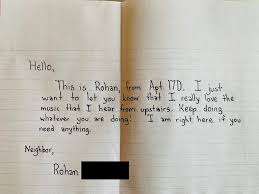 Hello,
This is Rohan, from Apt 17D. I just
want to let you know that I really love the
music that I hear from upstairs. Keep doing
whatever you are doing! I am right here if you
need anything.
Neighbor,
Rohan